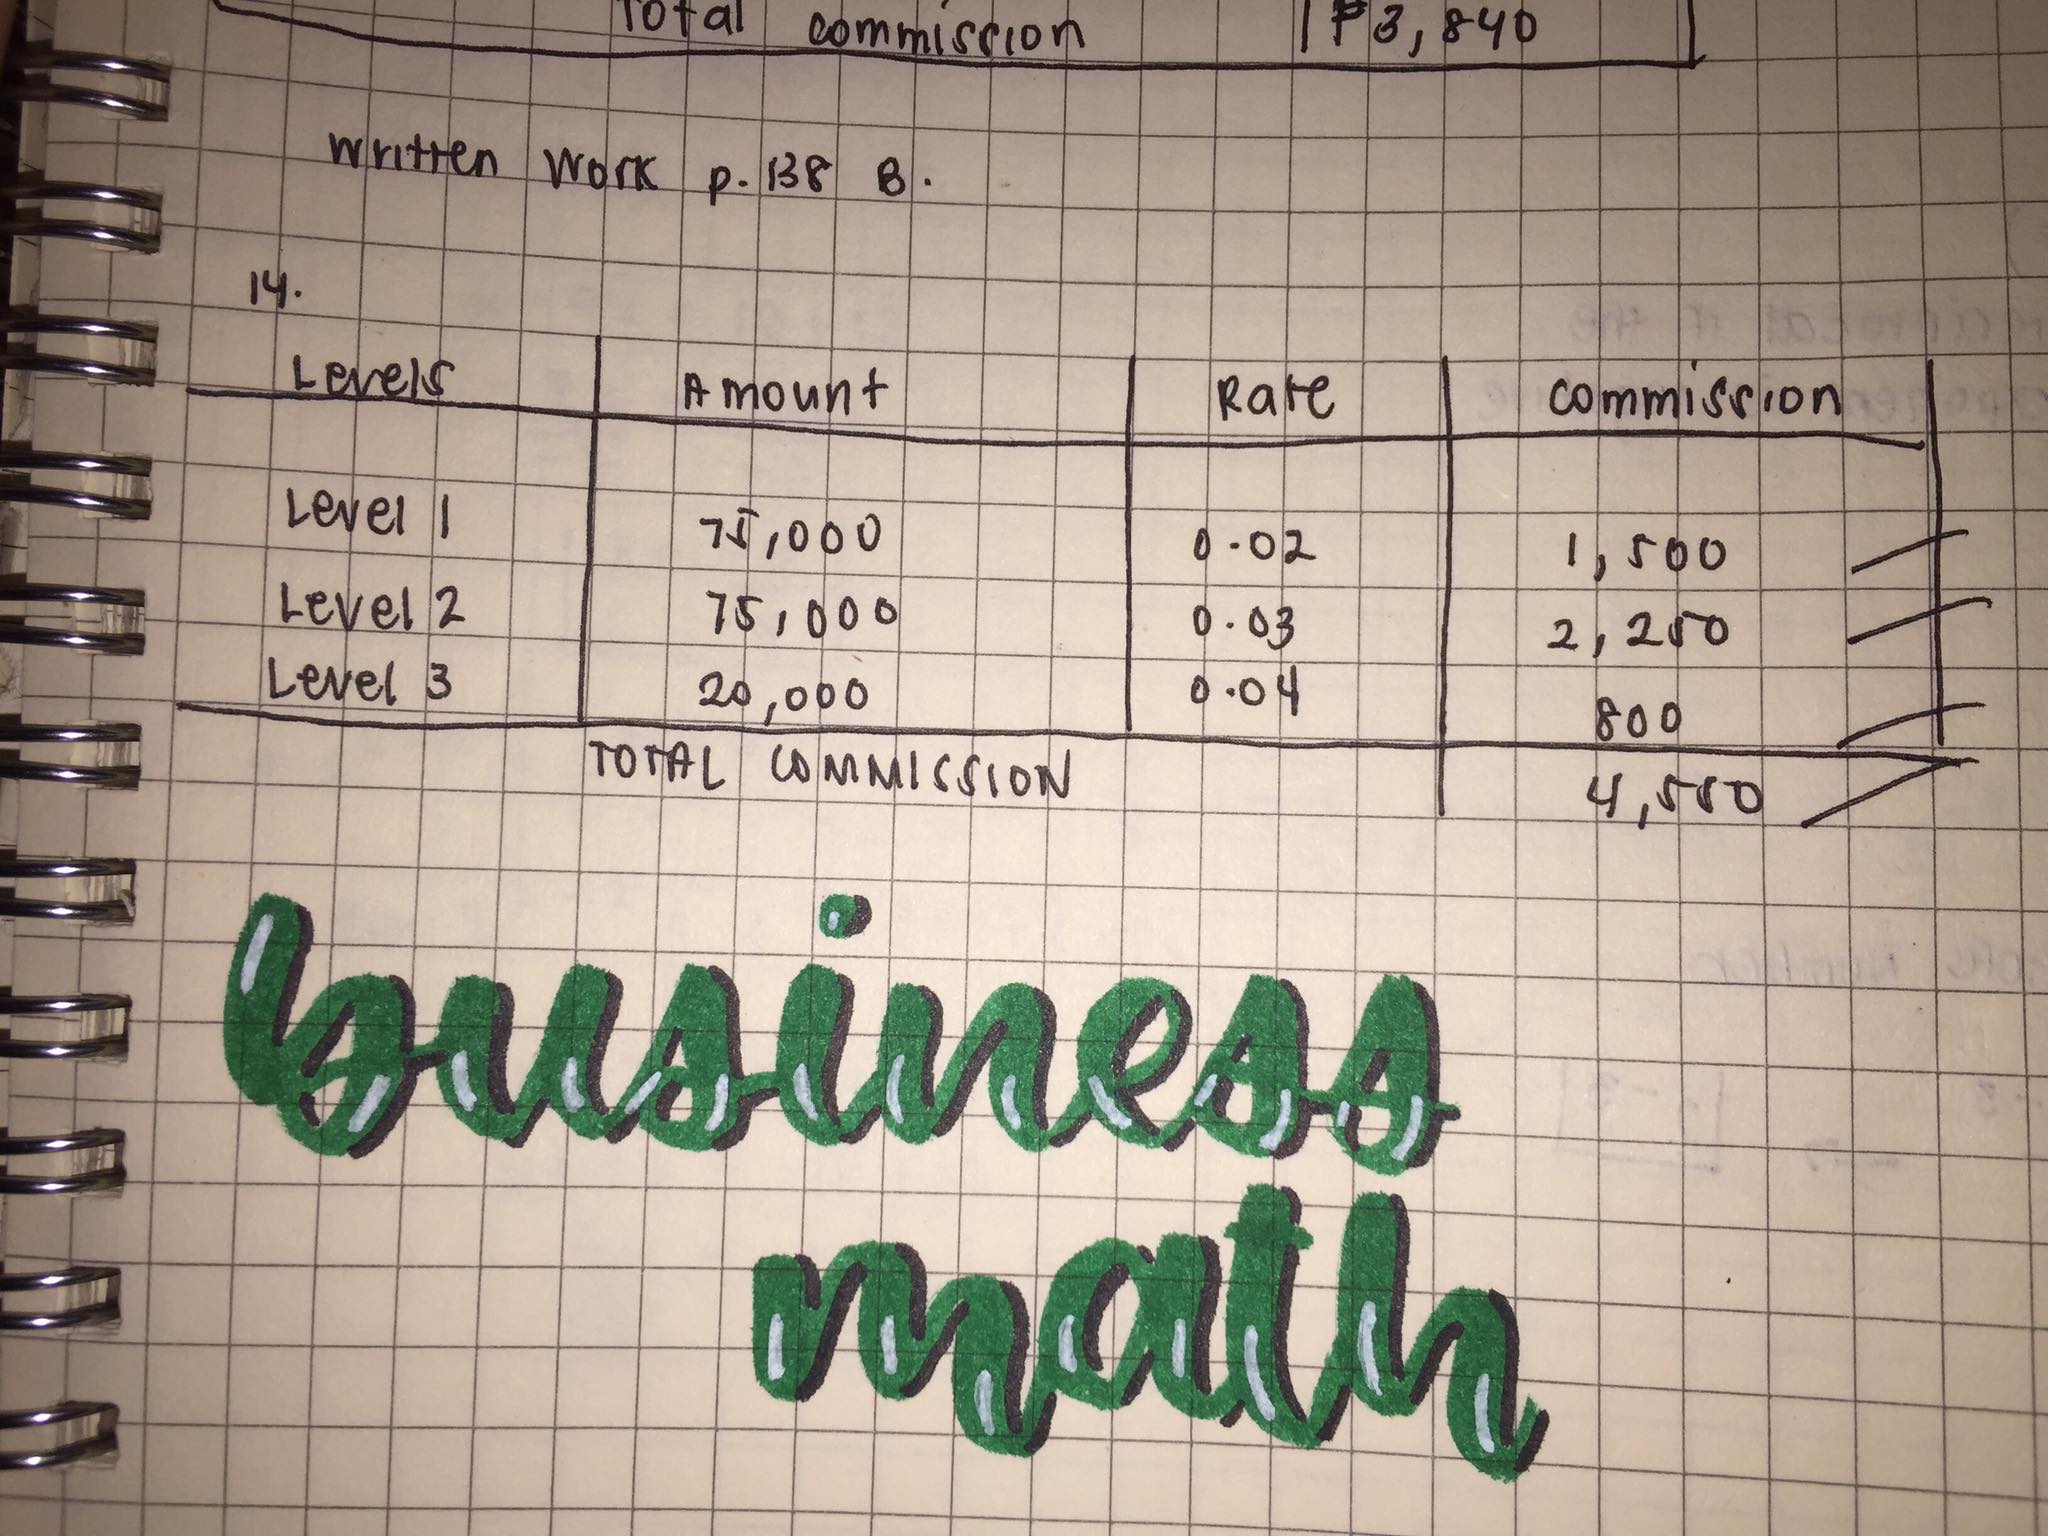 Total commission ₱3,840
Written Work p. 138 B.
14.
Levels Amount Rate Commission
Level 1 75,000 0.02 1,500
Level 2 75,000 0.03 2,250
Level 3 20,000 0.04 800
TOTAL COMMISSION 4,550
business
math